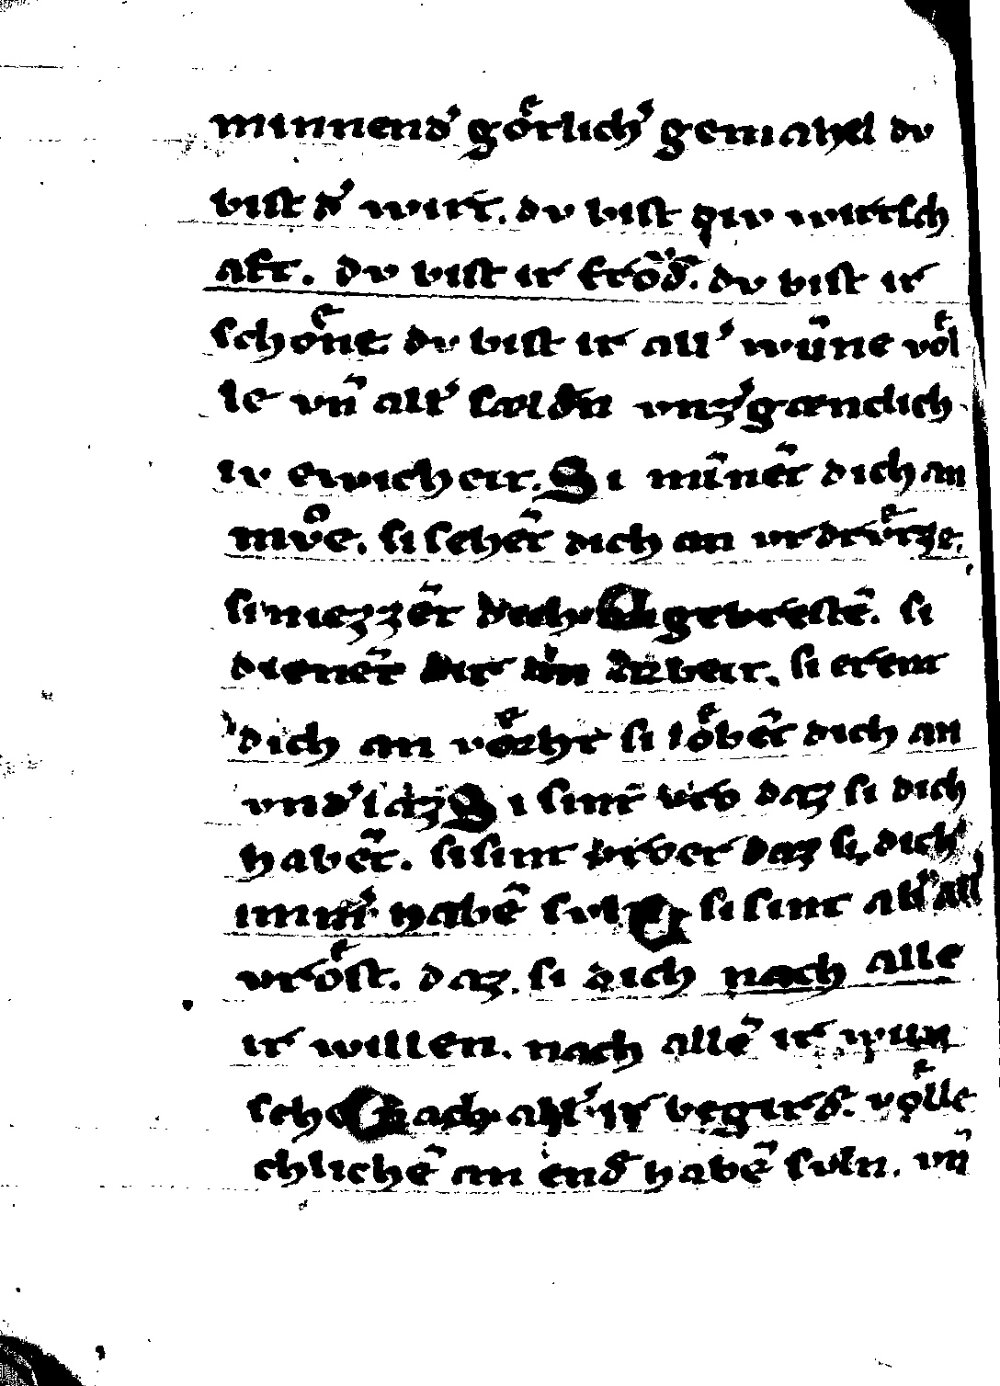 minnend᾽ goͤrlich᾽ gemahel dv
bist d᾽ wirt. dv bist div wirtsch
aft. dv bist ir froͤd̄. dv bist ir
schoͤne dv bist ir all᾽ wūne voͤl
le vn̄ all᾽ sældn̄ vnz᾽gænclich
iv ewicheit. Si mīnēt dich an
mvͦe. si sehēt dich an vrdrvͤtze.
si niezzēt dich gebrestē. si
dienēt dir an arbeit. si erent
dich an voͤrht si loͤbēt dich an
vnd᾽laz Si sint vro daz si dich
habēt. si sint vroer daz si dich
imm᾽ habē svln si sint all᾽ all᾽
vroͤst. daz si dich nach alle
ir willen. nach allē ir wun
sche nach all᾽ ir begird̄. voͤlle
chlichē an end̄ habē svln. vn̄